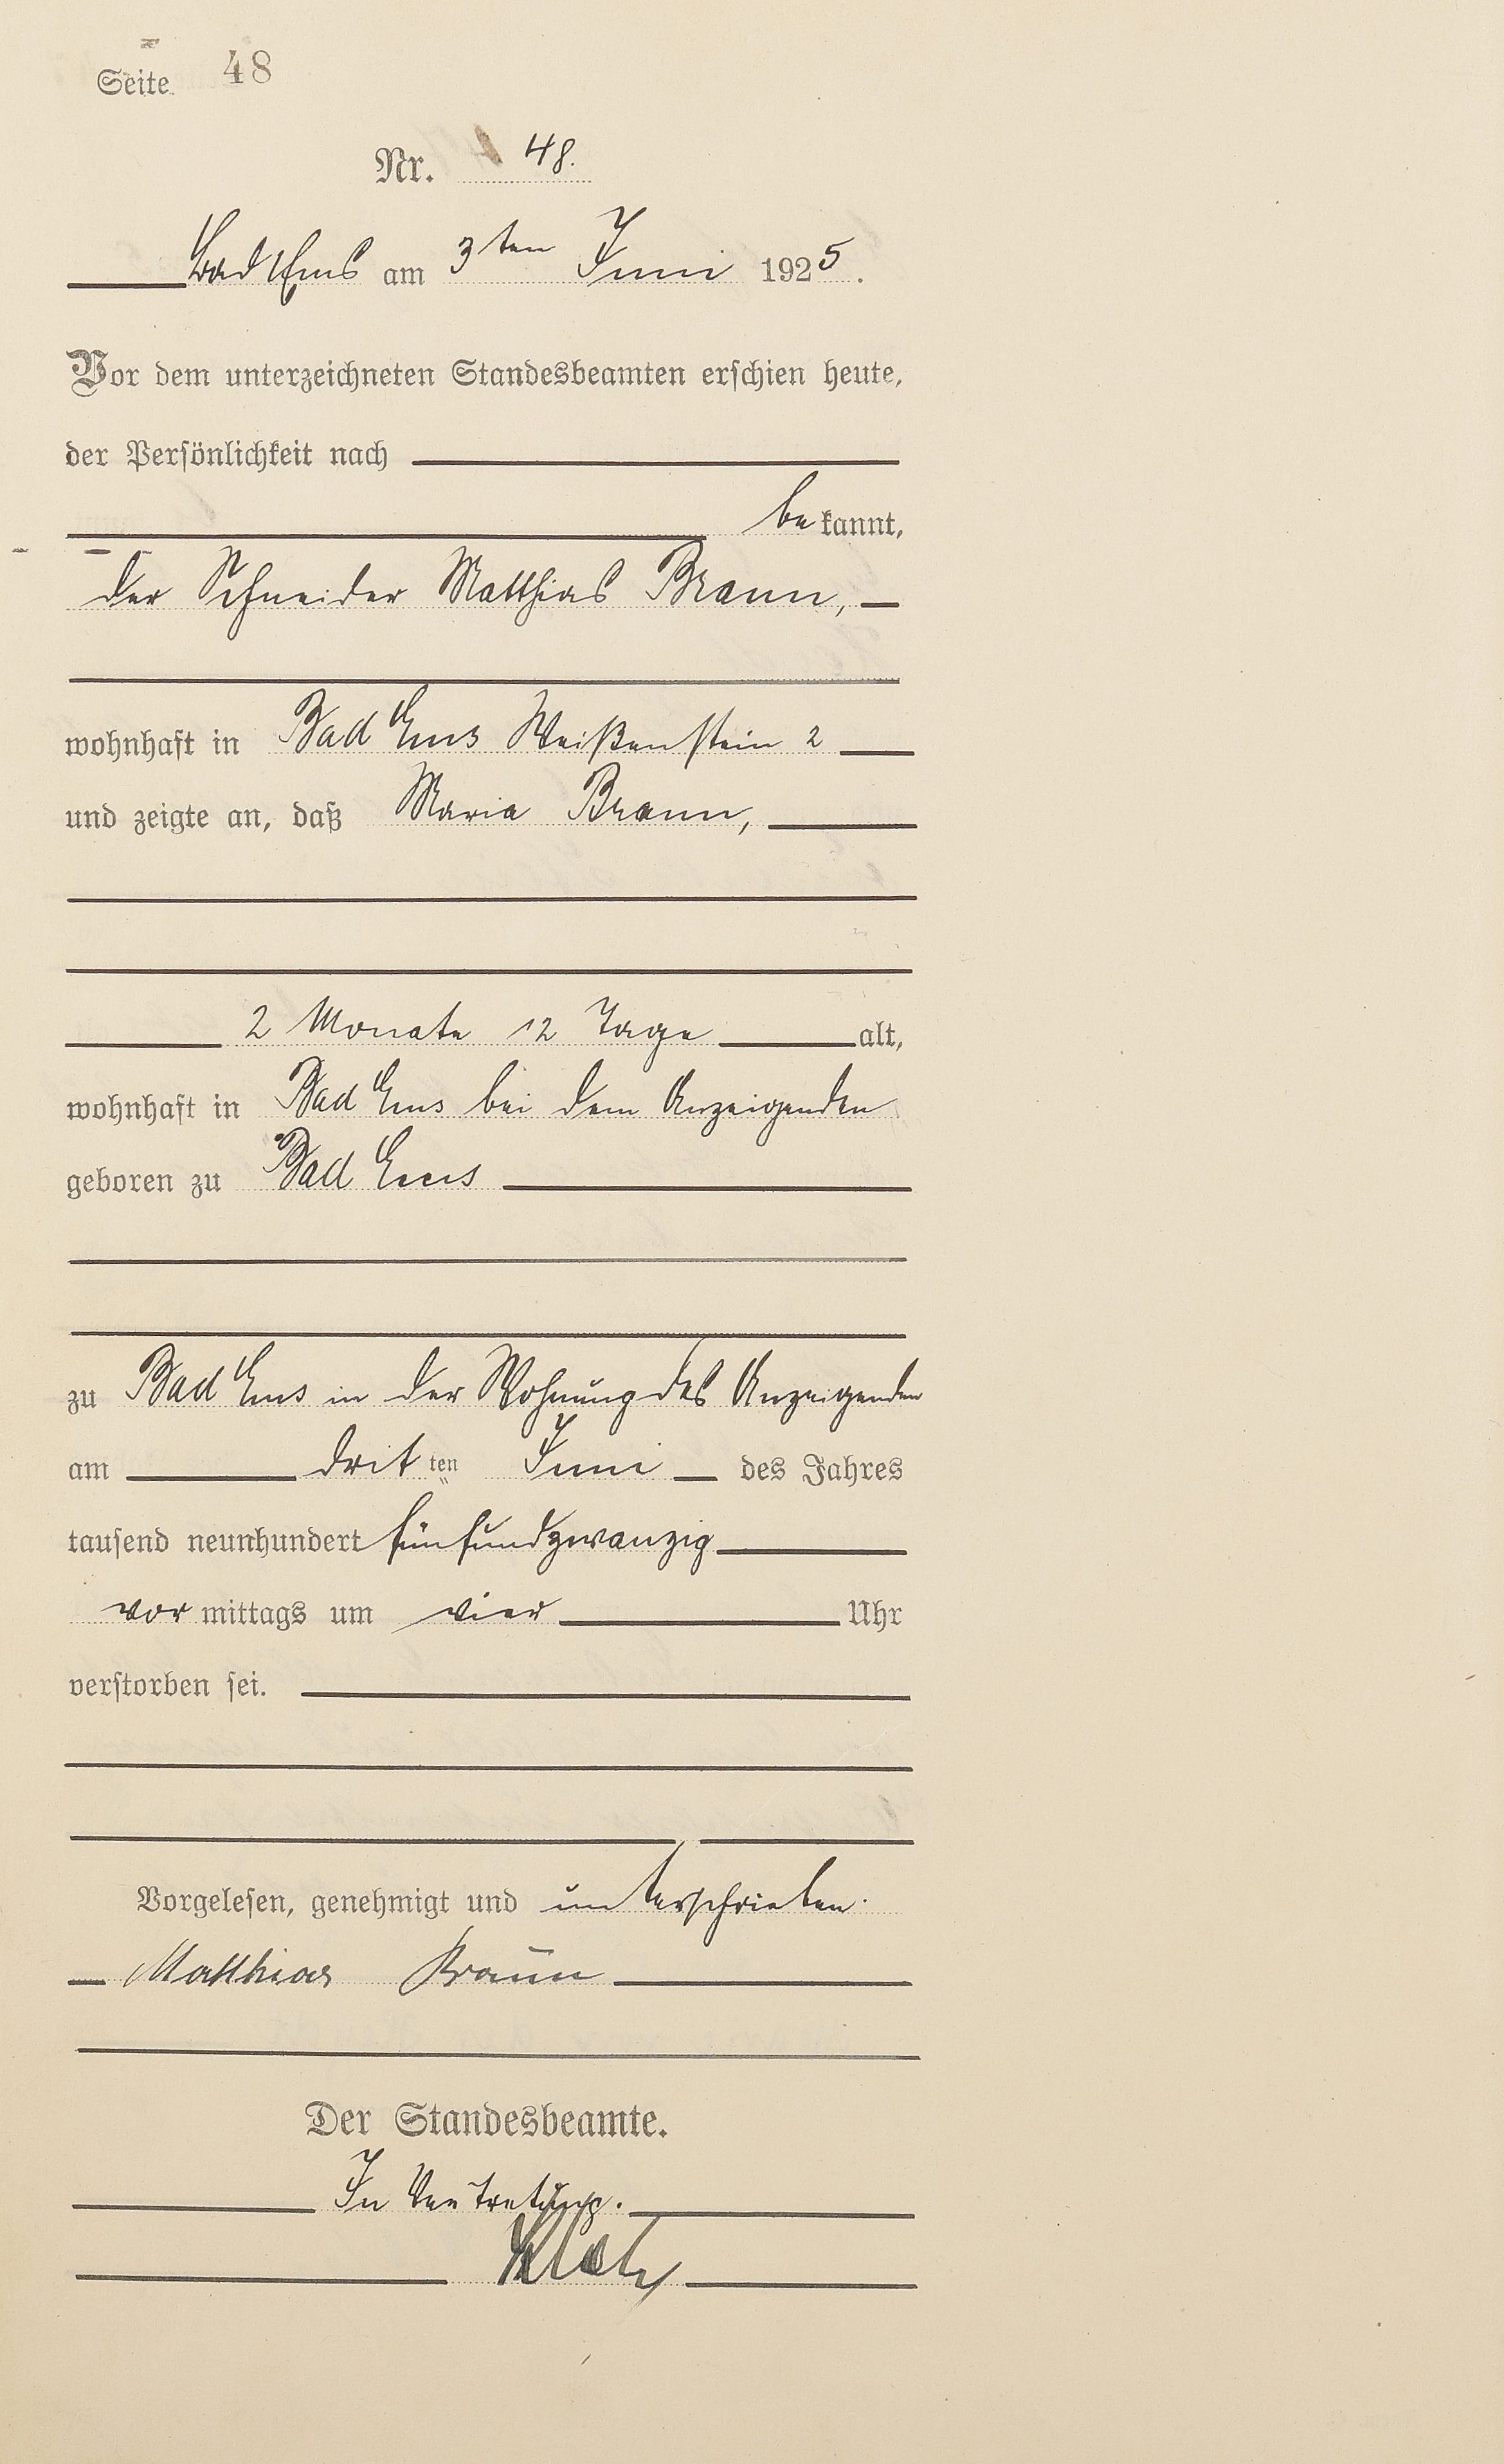 Seite 48
Nr. 48.
Bad Ems am 3ten Juni 1925.
Vor dem unterzeichneten Standesbeamten erschien heute,
der Persönlichkeit nach
bekannt,
der Schneider Matthias Braun,
wohnhaft in Bad Ems Weißenstein 2
und zeigte an, daß Maria Braun,
2 Monate 12 Tage alt,
wohnhaft in Bad Ems bei dem Anzeigenden
geboren zu Bad Ems
zu Bad Ems in der Wohnung des Anzeigenden
am dritten Juni des Jahres
tausend neunhundert fünfundzwanzig
vormittags um vier Uhr
verstorben sei.
Vorgelesen, genehmigt und unterschrieben.
Matthias Braun
Der Standesbeamte.
In Vertretung.